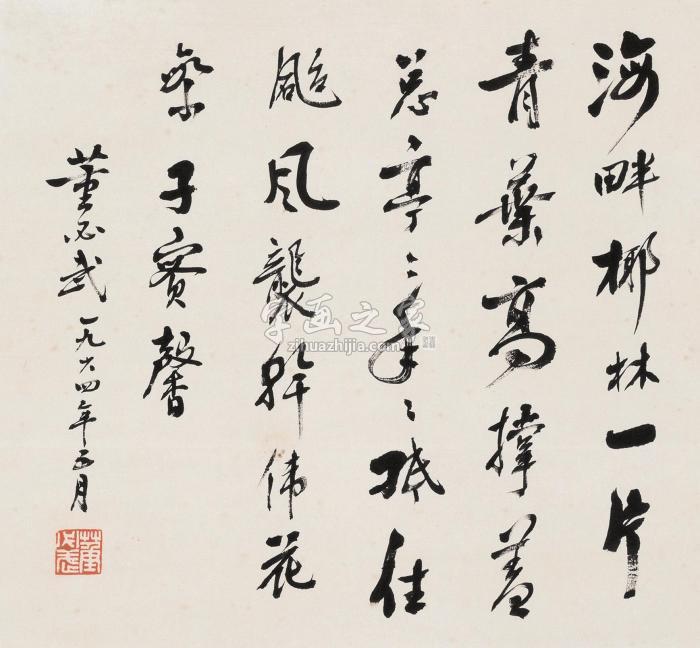 海畔椰林一片
青葉高撑蓋
总亭々年々抵住
颱风襲幹伟花
繁子實馨
董必武一九六四年 月
董必武
字画之家
zihuazhijia.com